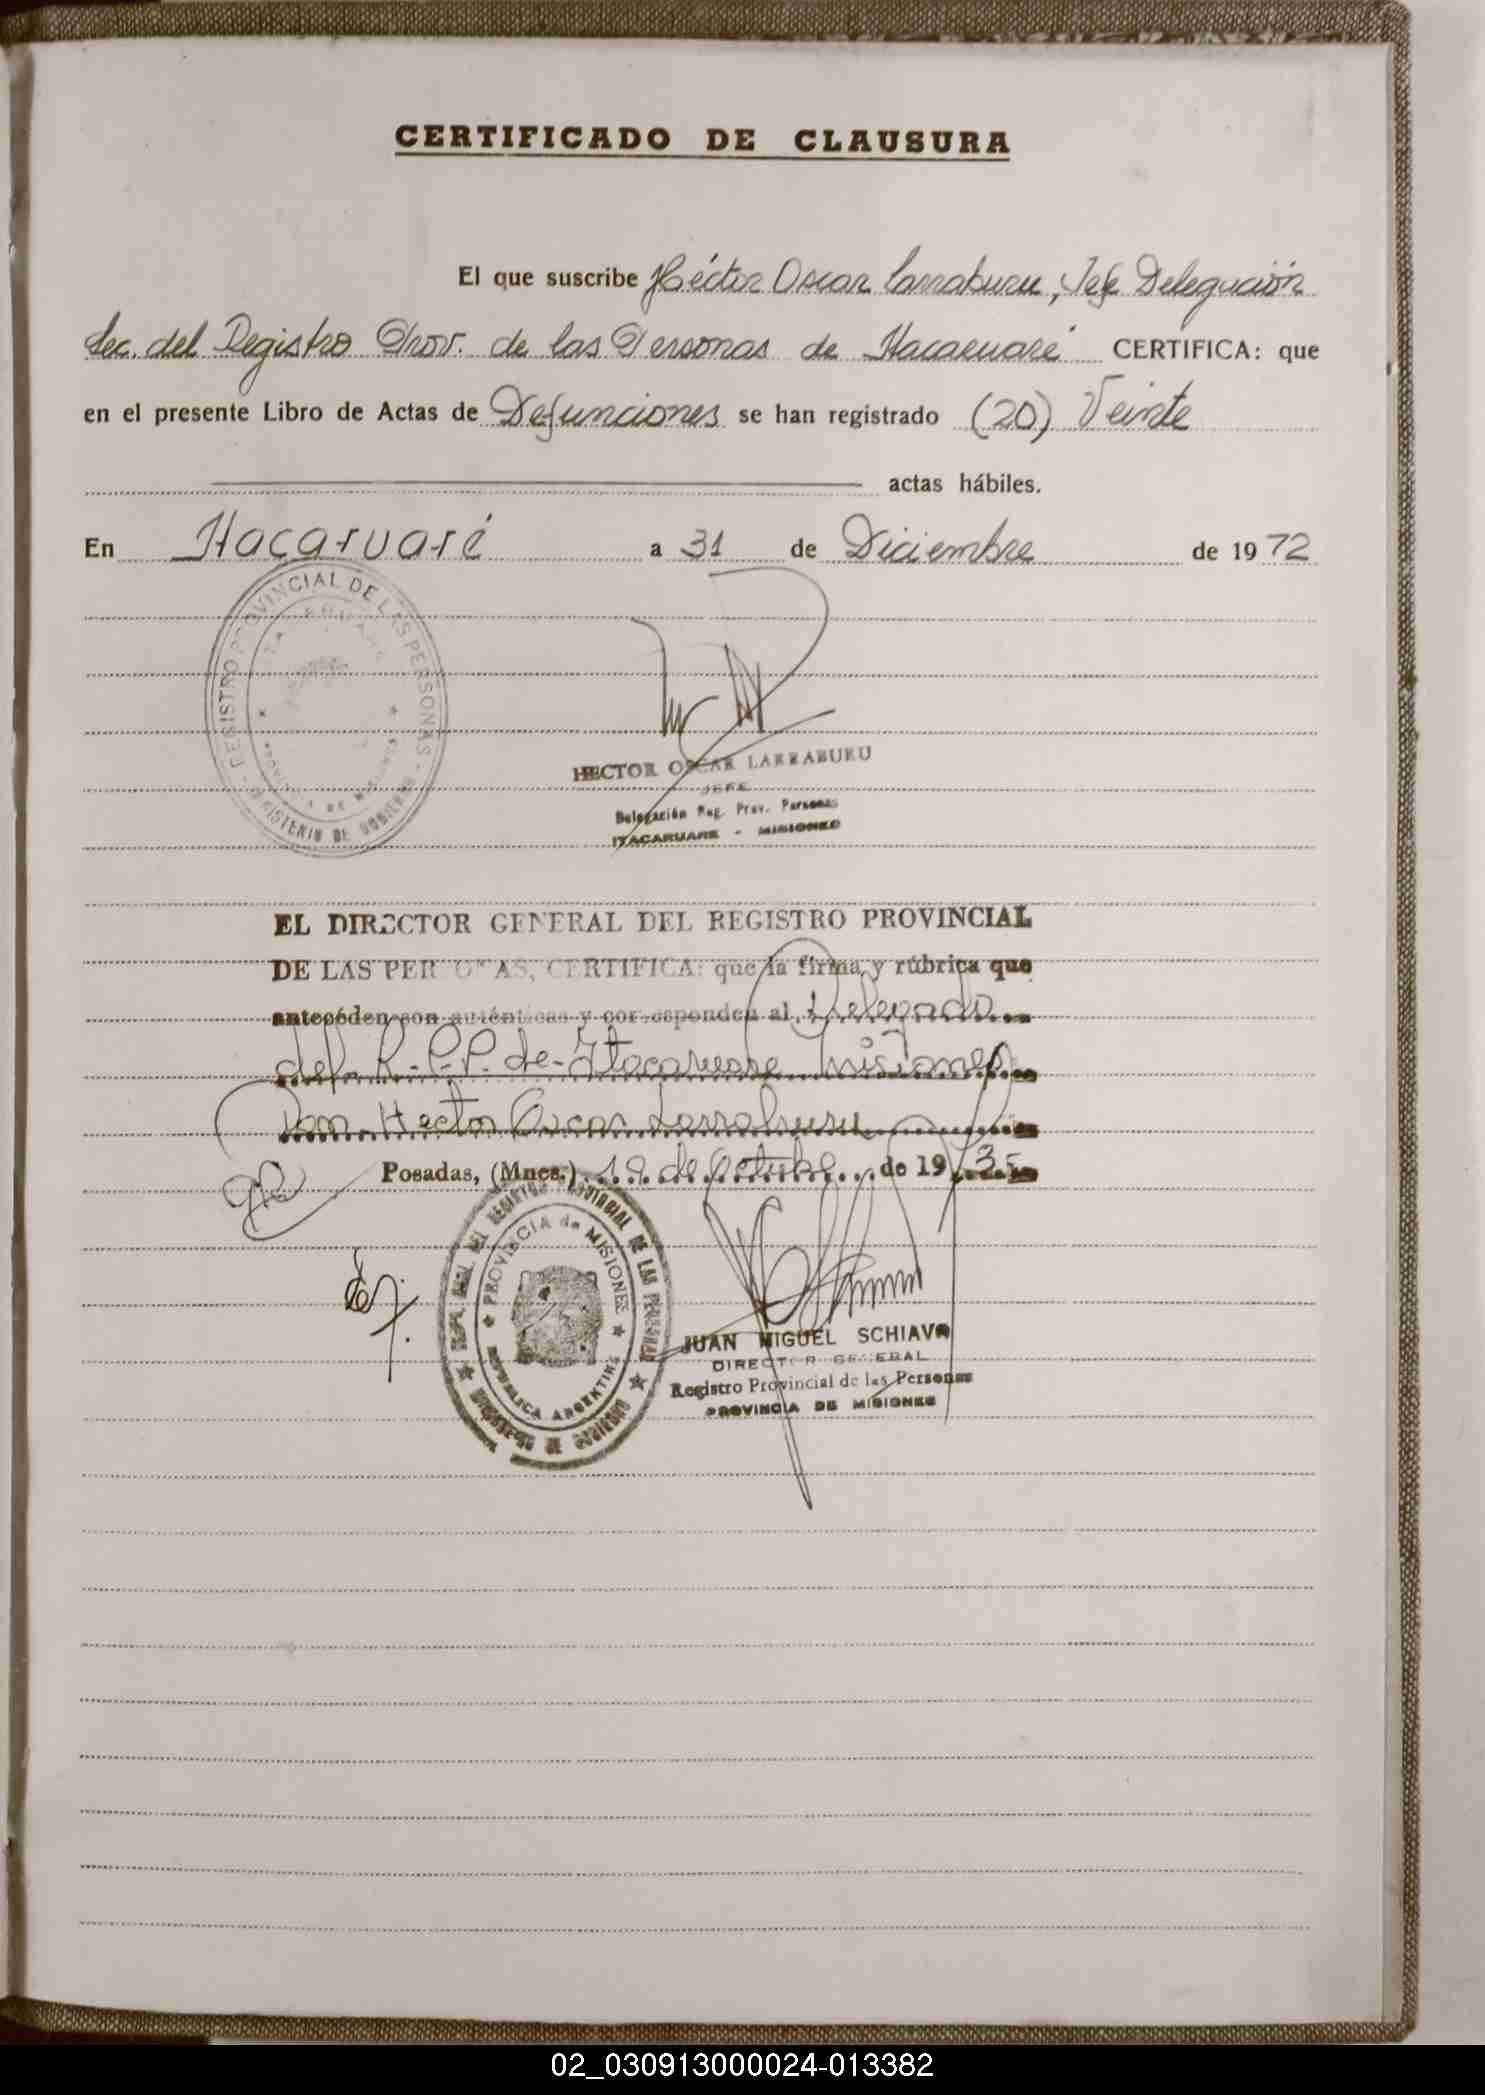 CERTIFICADO DE CLAUSURA
El que suscribe Héctor Oscar Larraburu, Jefe Delegación
Sec. del Registro Prov. de las Personas de Itacaruaré CERTIFICA: que
en el presente Libro de Actas de Defunciones se han registrado (20) Veinte
actas hábiles.
En Itacaruaré a 31 de Diciembre de 1972
REGISTRO PROVINCIAL DE LAS PERSONAS
PROVINCIA DE MISIONES
MINISTERIO DE GOBIERNO
HECTOR OSCAR LARRABURU
JEFE
Delegación Reg. Prov. Personas
ITACARUARE - MISIONES
EL DIRECTOR GENERAL DEL REGISTRO PROVINCIAL
DE LAS PERSONAS, CERTIFICA: que la firma y rúbrica que
anteceden son auténticas y corresponden al Delegado
del R.P.P. de Itacaruare Misiones
Don Hector Oscar Larraburu
Posadas, (Mnes.) 19 de Octubre de 19
DEL REGISTRO PROVINCIAL DE LAS PERSONAS
PROVINCIA de MISIONES
REPUBLICA ARGENTINA
MINISTERIO DE GOBIERNO
JUAN MIGUEL SCHIAVO
DIRECTOR GENERAL
Registro Provincial de las Personas
PROVINCIA DE MISIONES
02_030913000024-013382